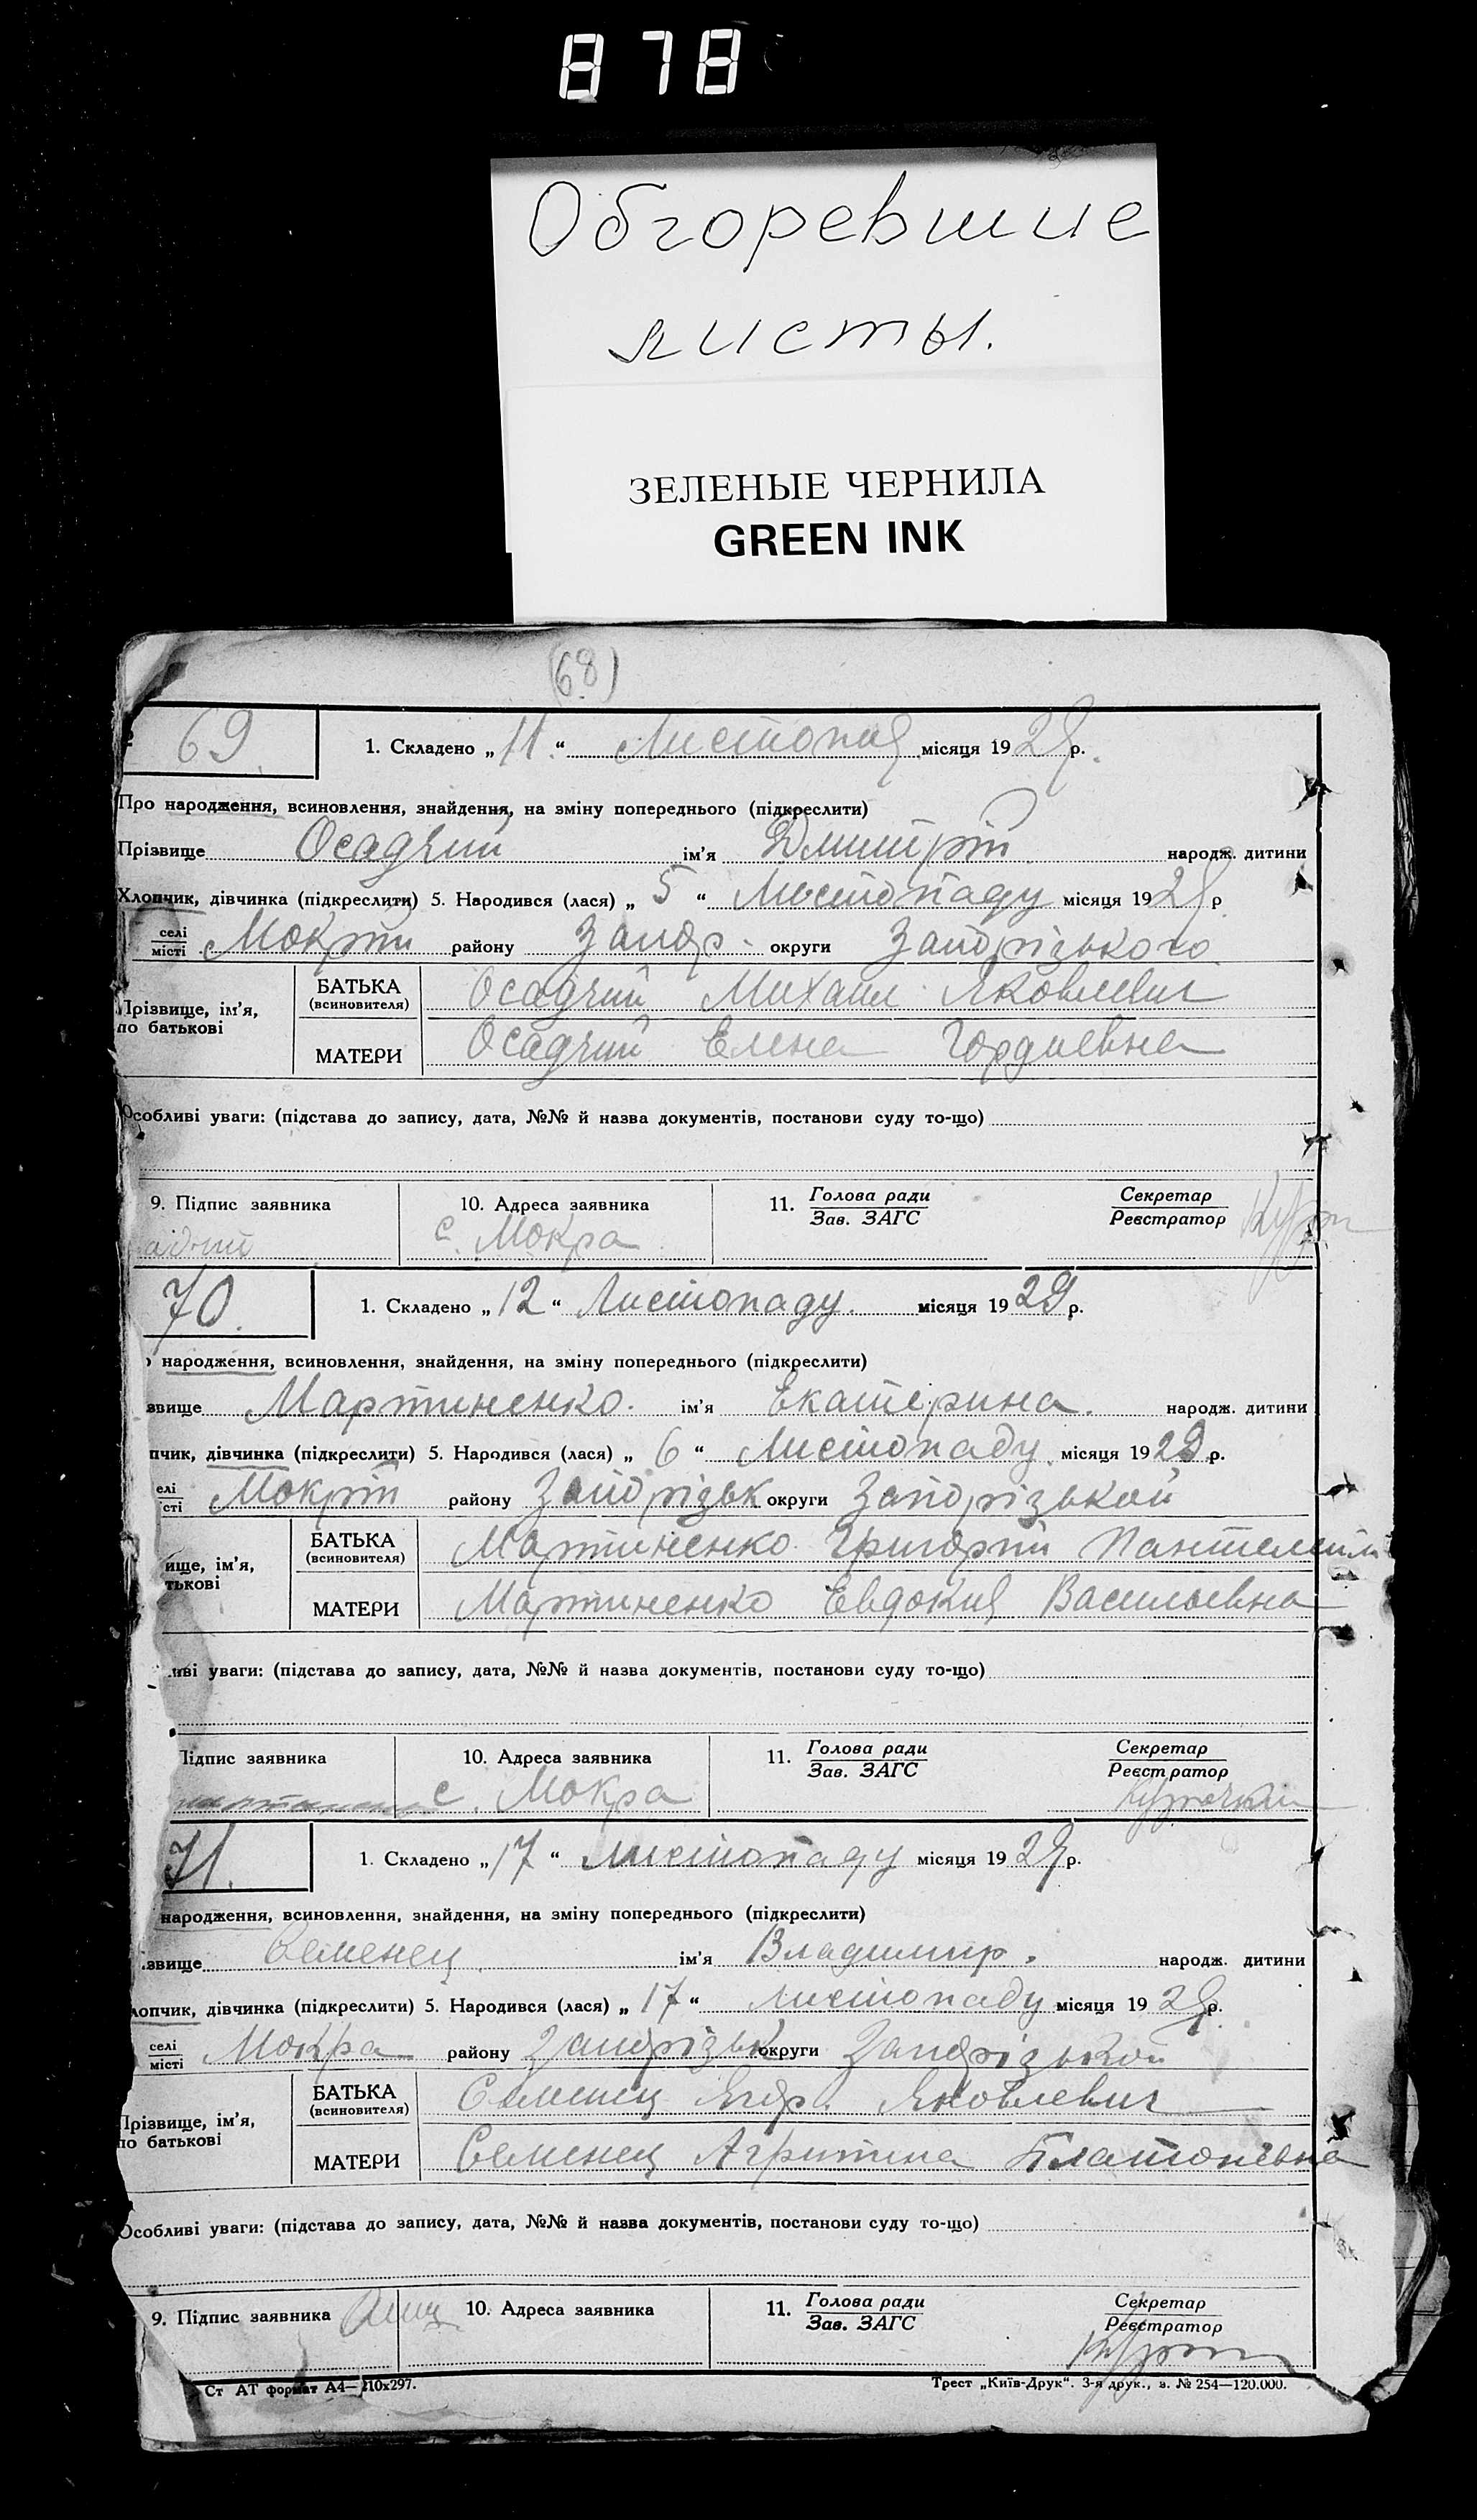 878
Обгоревшие
листы.
ЗЕЛЕНЫЕ ЧЕРНИЛА
GREEN INK
(68)
69. 1. Складено „11.“ Листопад місяця 1929 р.
Про народження, всиновлення, знайдення, на зміну попереднього (підкреслити)
Прізвище Осадчий ім'я Дмитрій народж. дитини
Хлопчик, дівчинка (підкреслити) 5. Народився (лася) „5“ Листопаду місяця 1929 р
селі
місті Мокрій району Запор. округи Запорізького
Прізвище, ім'я,
по батькові
БАТЬКА
(всиновителя) Осадчий Михаил Яковлевич
МАТЕРИ Осадчий Елена Гордиевна
Особливі уваги: (підстава до запису, дата, №№ й назва документів, постанови суду то-що)
9. Підпис заявника 10. Адреса заявника 11. Голова ради Секретар
Зав. ЗАГС Реєстратор
адчий с. Мокра
70. 1. Складено „12“ Листопаду. місяця 1929 р.
народження, всиновлення, знайдення, на зміну попереднього (підкреслити)
звище Мартиненко. ім'я Екатерина. народж. дитини
пчик, дівчинка (підкреслити) 5. Народився (лася) „6“ Листопаду місяця 1929 р.
елі
сті Мокрій району Запорізьк округи Запорізькой
ище, ім'я,
тькові
БАТЬКА
(всиновителя) Мартиненко Григорій Пантелейм
МАТЕРИ Мартиненко Евдокия Васильевна
иві уваги: (підстава до запису, дата, №№ й назва документів, постанови суду то-що)
Підпис заявника 10. Адреса заявника 11. Голова ради Секретар
Зав. ЗАГС Реєстратор
с. Мокра
71. 1. Складено „17“ Листопаду місяця 1929 р.
народження, всиновлення, знайдення, на зміну попереднього (підкреслити)
звище Семенец ім'я Владимир. народж. дитини
лопчик, дівчинка (підкреслити) 5. Народився (лася) „17“ Листопаду місяця 1929 р.
селі
місті Мокра району Запорізьк округи Запорізькой
Прізвище, ім'я,
по батькові
БАТЬКА
(всиновителя) Семенец Ягор Яковлевич
МАТЕРИ Семенец Агрипина Платоневна
Особливі уваги: (підстава до запису, дата, №№ й назва документів, постанови суду то-що)
9. Підпис заявника 10. Адреса заявника 11. Голова ради Секретар
Зав. ЗАГС Реєстратор
Ст АТ формат А4—210х297. Трест „Київ-Друк“. 3-я друк., з. № 254—120.000.